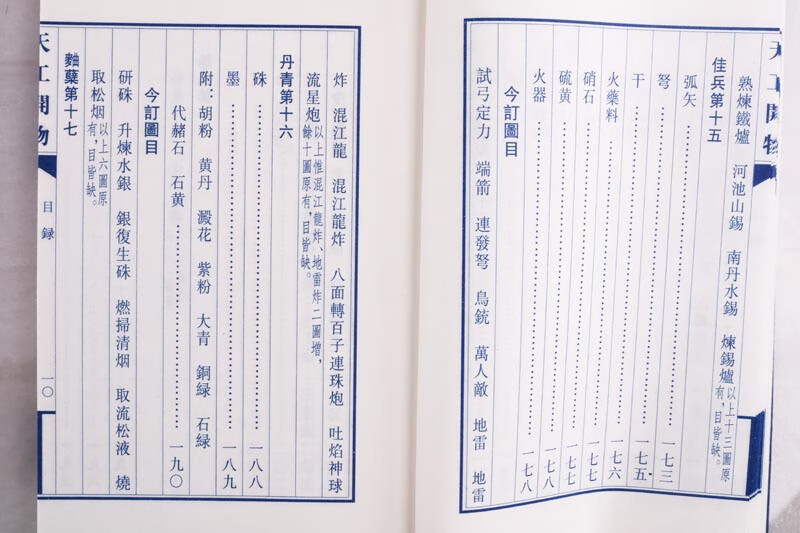 天工開物
熟煉鐵爐　河池山錫　南丹水錫　煉錫爐以上十三圖原有，目皆缺。
佳兵第十五
弧矢
弩……一七三
干……一七五
火藥料……一七六
硝石……一七七
硫黄……一七七
火器……一七八
一七八
今訂圖目
試弓定力　端箭　連發弩　鳥銃　萬人敵　地雷　地雷
炸　混江龍　混江龍炸　八面轉百子連珠炮　吐焰神球
流星炮以上惟混江龍炸、地雷炸二圖增，餘十圖原有，目皆缺。
丹青第十六
硃……一八八
墨……一八九
附：胡粉　黄丹　澱花　紫粉　大青　銅緑　石緑
代赭石　石黄……一九〇
今訂圖目
研硃　升煉水銀　銀復生硃　燃掃清烟　取流松液　燒
取松烟以上六圖原有，目皆缺。
麯蘗第十七
天工開物
目録
一〇